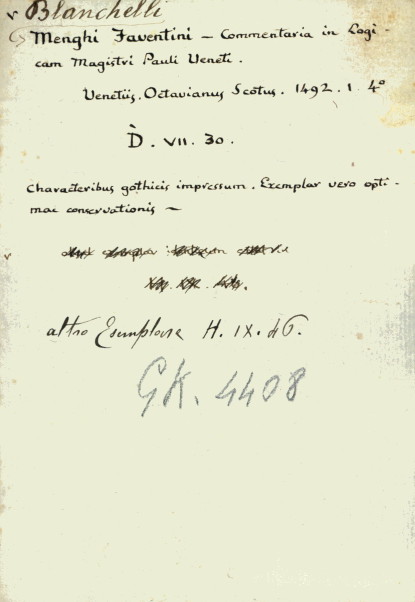 v Blanchelli
Menghi Faventini – Commentaria in Logi-
cam Magistri Pauli Veneti.
Venetiis. Octavianus Scotus. 1492. 1. 4º
D. VII. 30.
Characteribus gothicis impressum. Exemplar vero opti-
mae conservationis –
altro Esemplare H. IX. 46.
GK. 4408